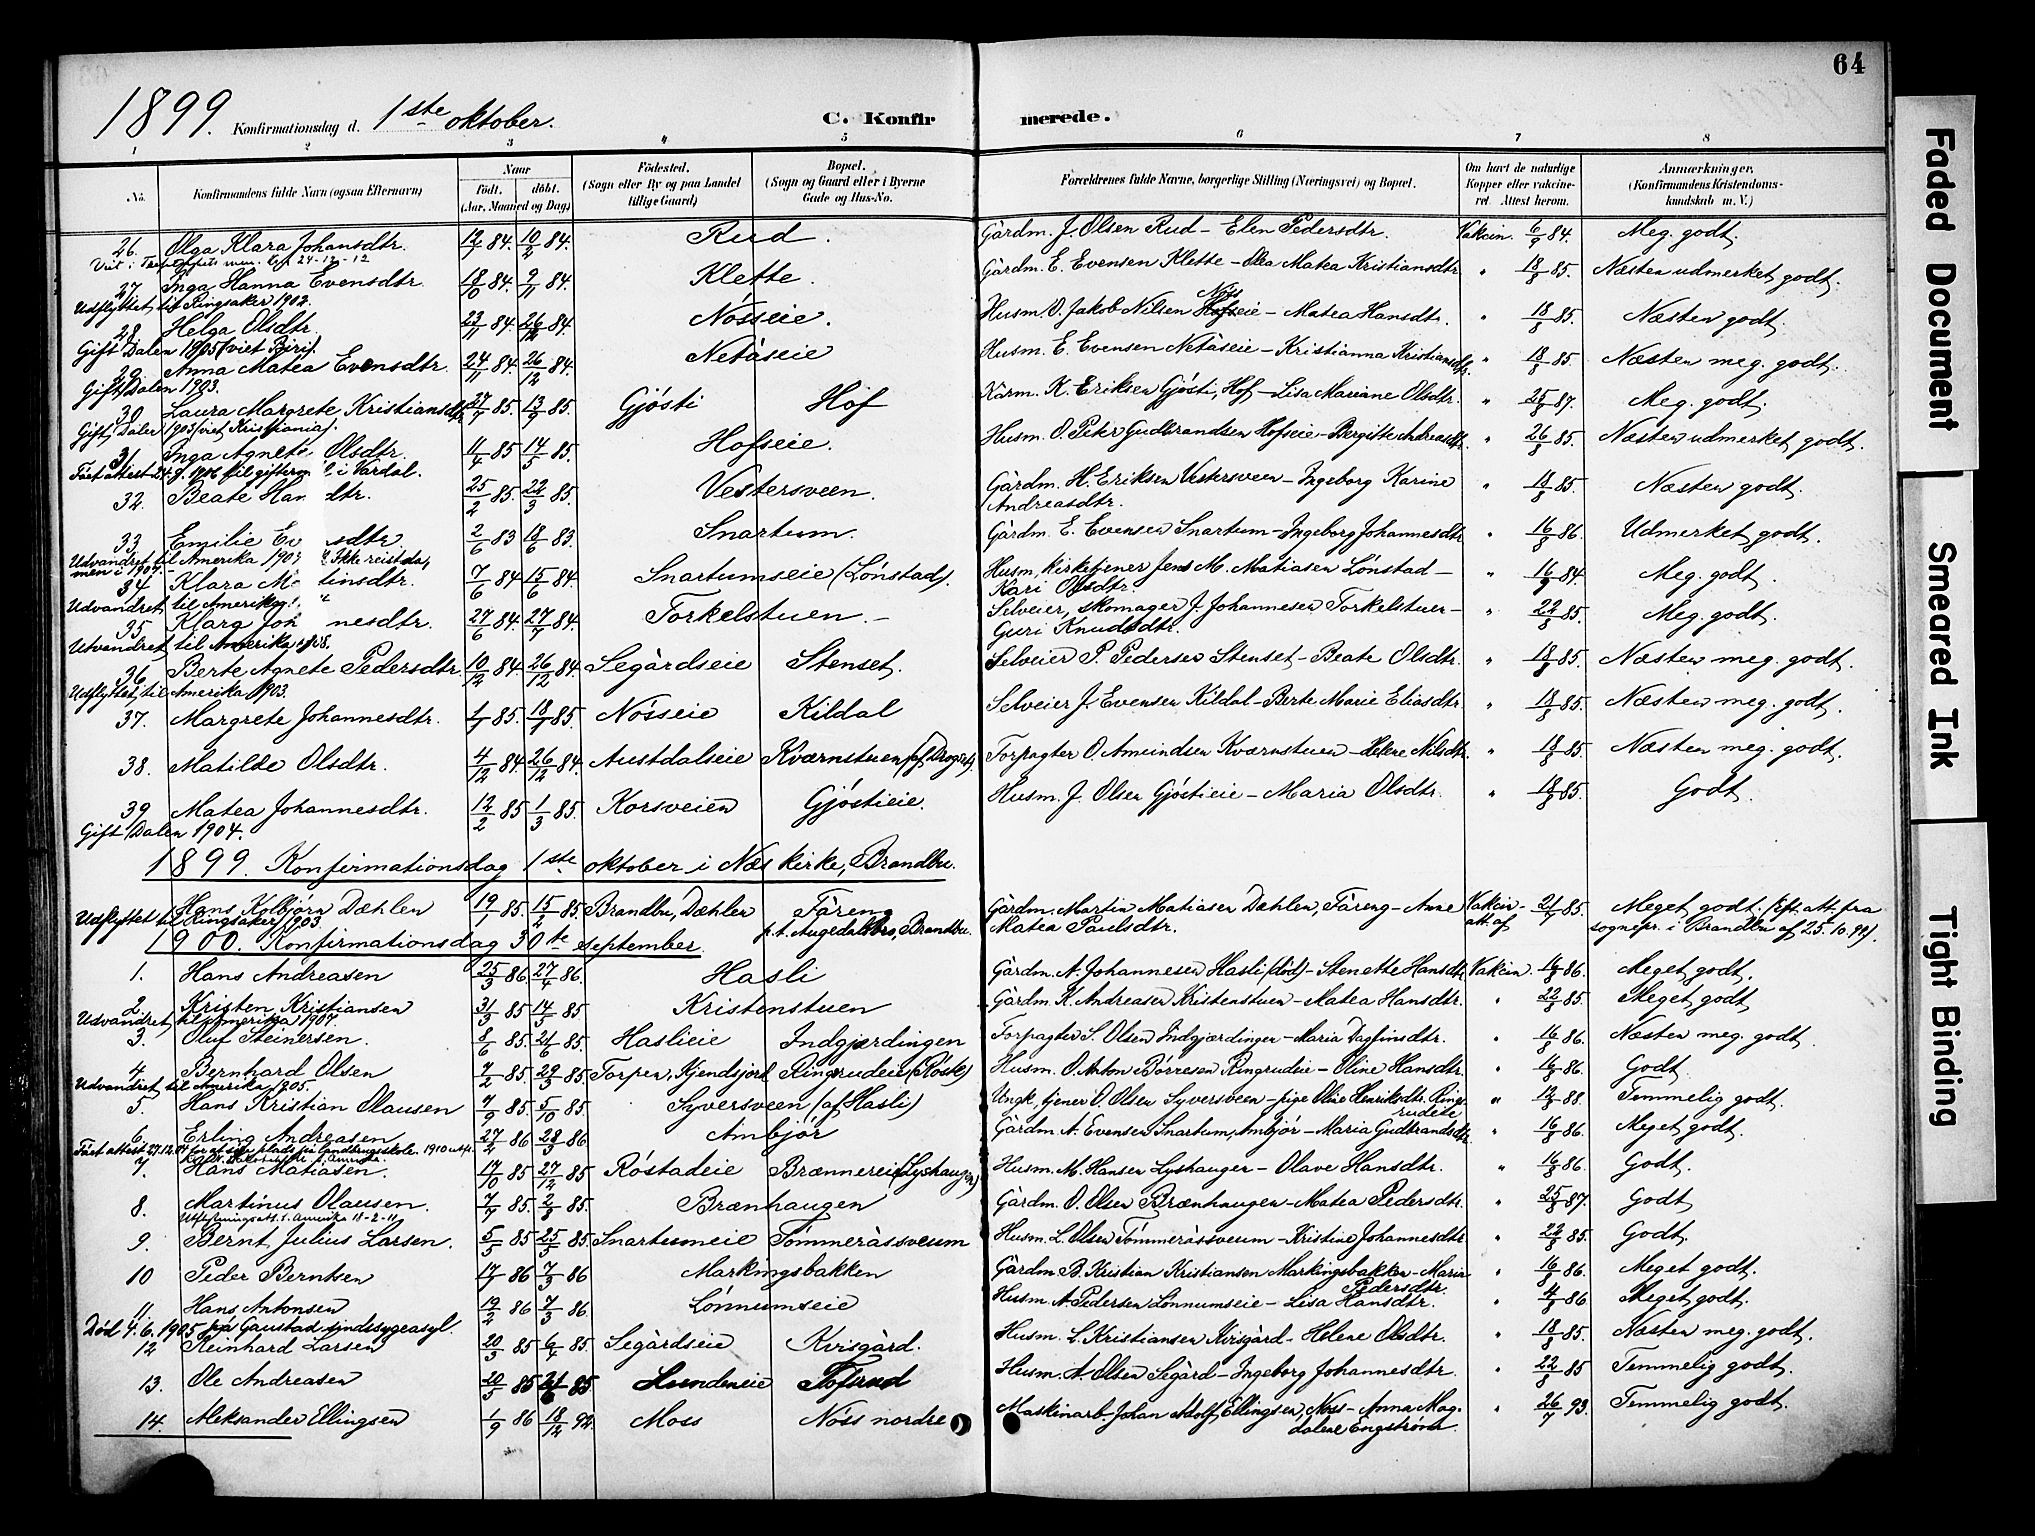 64
1899. Konfirmationsdag d. 1ste oktober. C. Konfirmerede.
1 2 3 4 5 6 7 8
No. Konfirmandens fulde Navn (ogsaa Efternavn) Naar födt. döbt. (Aar, Maaned og Dag) Födested. (Sogn eller By og paa Landet tillige Gaard) Bopæl. (Sogn og Gaard eller i Byerne Gade og Hus-No. Forældrenes fulde Navne, borgerlige Stilling (Næringsvei) og Bopæl. Om havt de naturlige Kopper eller vakcineret. Attest herom. Anmærkninger. (Konfirmandens Kristendomskundskab m. V.)
26. Olga Klara Johansdtr. 12/1 84. 10/2 84. Rud. Gårdm. J. Olsen Rud - Elen Pedersdtr. Vakcin. 6/9 84. Meg. godt.
27 Inga Hanna Evensdtr. 18/10 84. 9/11 84. Klette. Gårdm. E. Evensen Klette - Olea Matea Kristiansdtr. " 18/8 85. Næsten udmerket godt.
Udflyttet til Ringsaker 1902.
28. Helga Olsdtr. 23/11 84. 26/12 84. Nösseie. Husm. O. Jakob Nilsen Nösseie - Matea Hansdtr. " 18/8 85. Næsten godt.
Gift Dalen 1905 (viet Biri).
29. Anna Matea Evensdtr. 24/11 84. 26/12 84. Netåseie Husm. E. Evensen Netåseie - Kristianna Kristiansdtr. " 18/8 85. Næsten meg. godt.
Gift Dalen 1903.
30 Laura Margrete Kristiansdtr. 27/7 85. 13/9 85. Gjösti Hof K. Eriksen Gjösti, Hof - Lisa Mariane Olsdtr. " 25/8 87. Meg. godt.
Gift Dalen 1903 (viet Kristiania).
31 Inga Agnete Olsdtr. 11/4 85 17/5 85. Hofseie. Husm. O. Peter Gudbrandsen Hofseie - Bergitte Andreasdtr. " 26/8 85. Næsten udmerket godt.
Fået attest 24. 9. 1906 til giftermål i Vardal.
32. Beate Han dtr. 25/2 85. 22/3 85. Vestersveen. Gårdm. H. Eriksen Vestersveen - Ingeborg Karine Andreasdtr. " 18/8 85. Næsten godt.
33 Emilie Ev sdtr. 2/6 83 18/6 83. Snartum. Gårdm. E. Evensen Snartum - Ingeborg Johannesdtr " 16/8 86. Udmerket godt.
Udvandret til Amerika 1903 Ikke reist da, men i 1907.
34 Klara M tinsdtr. 7/6 84 15/6 84. Snartumseie (Lönstad). Husm, kirketjener Jens M. Matiasen Lönstad - Kari Olsdtr. " 16/9 84. Meg. godt.
Udvandret til Amerika
35 Klara Joh nesdtr. 27/6 84. 27/7 84. Torkelstuen. Selveier, skomager J. Johannesen Torkelstuen - Guri Knudsdtr. " 22/8 85. Meg. godt.
Utvandret til Amerika
36 Berte Agnete Pedersdtr. 10/12 84. 26/12 84. Segårdseie Stenset. Selveier P. Pedersen Stenset - Beate Olsdtr. " 18/8 85. Næsten meg. godt.
Udflyttet til Amerika 1903.
37. Margrete Johannesdtr. 1/1 85. 18/1 85. Nösseie Kildal Selveier J. Evensen Kildal - Berte Marie Eliasdtr. " 18/8 85. Næsten meg. godt.
38. Matilde Olsdtr. 4/12 84. 26/12 84. Austdalseie Kværnstuen Forpagter O. Amundsen Kværnstuen - Helene Nilsdtr. " 18/8 85. Næsten meg. godt.
39 Matea Johannesdtr. 12/2 85 1/3 85. Korsveien Gjöstieie. Husm. J. Olsen Gjöstieie - Maria Olsdtr. " 18/8 85. Godt.
Gift Dalen 1904.
1899. Konfirmationsdag 1ste oktober i Næs kirke, Brandbu.
Hans Kolbjörn Dæhlen 19/1 85. 15/2 85. Brandbu, Dæhlen Färeng p.t. Augedalsbro, Brandbu. Gårdm. Martin Matiasen Dæhlen, Färeng - Anne Matea Paulsdtr. Vakcin- att. af 21/7 85. Meget godt. (Eft. att. fra sognepr. i Brandbu af 25. 10. 99).
Udflyttet til Ringsaker 1903.
1900. Konfirmationsdag 30te september.
1. Hans Andreasen 25/3 86 27/4 86. Hasli Gårdm. A. Johannesen Hasli (död) - Stenette Hansdtr Vakcin. 16/8 86. Meget godt.
2. Kristen Kristiansen 31/3 85 14/5 85. Kristenstuen Gårdm. K. Andreasen Kristenstuen - Matea Hansdtr. " 22/8 85. Meget godt
Udvandret til Amerika 1907.
3. Oluf Steinersen. 8/6 85. 21/6 85. Haslieie Indgjerdingen Forpagter S. Olsen Indgjærdingen - Maria Dagfinsdtr. " 16/8 86. Næsten meg. godt.
4 Bernhard Olsen 7/2 85. 29/3 85 Torpen, Kjendsjord Ringrudeie (Röste) Husm. O. Anton Börresen Ringrudeie - Oline Hansdtr. " 16/8 86. Godt.
Udvandret til Amerika 1905.
5. Hans Kristian Olausen 7/9 85. 5/10 85. Syversveen (af Hasli) Ungk., tjener O. Olsen Syversveen - pige Oline Henriksdtr. Ringrudeie " 12/8 88. Temmelig godt.
6. Erling Andreasen 27/2 86 28/3 86 Ambjör Gårdm. A. Evensen Snartum, Ambjör - Maria Gudbrandsdtr. " 16/8 86. Meget godt.
7. Hans Matiasen. 17/10 85 27/12 85. Röstadeie Brænnereie (Lyshaugen) Husm. M. Hansen Lyshaugen - Olave Hansdtr. " 16/8 86. Godt.
8. Martinus Olausen. 7/7 85. 2/8 85. Brænhaugen Gårdm. O. Olsen Brænhaugen - Matea Pedersdtr. " 25/8 87. Godt
Utflytningsatt. t. Amerika 18-2-11
9. Bernt Julius Larsen. 5/5 85 25/5 85. Snartumeie Tömmeråssveum Husm. L. Olsen Tömmeråssveum - Kristine Johannesdtr " 22/8 85. Godt.
10 Peder Berntsen 17/1 86 7/3 86 Markingsbakken Gårdm. B. Kristian Kristiansen Markingsbakken - Maria Pedersdtr. " 16/8 86. Meget godt.
11. Hans Antonsen 12/2 86 7/3 86. Lönnumseie Husm. A. Pedersen Lönnumseie - Lisa Hansdtr. " 4/8 86 Meget godt.
Död 4. 6. 1905 på Gaustad sindssygeasyl.
12 Reinhard Larsen 20/3 85 6/4 85. Segårdseie Kvisgård. Husm. L. Kristiansen Kvisgård - Helene Olsdtr. " 18/8 85. Næsten meg. godt.
13. Ole Andreasen 20/5 85 21/6 85. Lundeneie Tofsrud Husm. A. Olsen Segård - Ingeborg Johannesdtr. " 22/8 85 Temmelig godt.
14. Aleksander Ellingsen 1/9 86 18/12 92. Moss Nöss nordre Maskinarb. Johan Adolf Ellingsen, Nöss - Anna Magdalene Engström. " 26/7 93. Temmelig godt.
Faded Document
Smeared Ink
Tight Binding